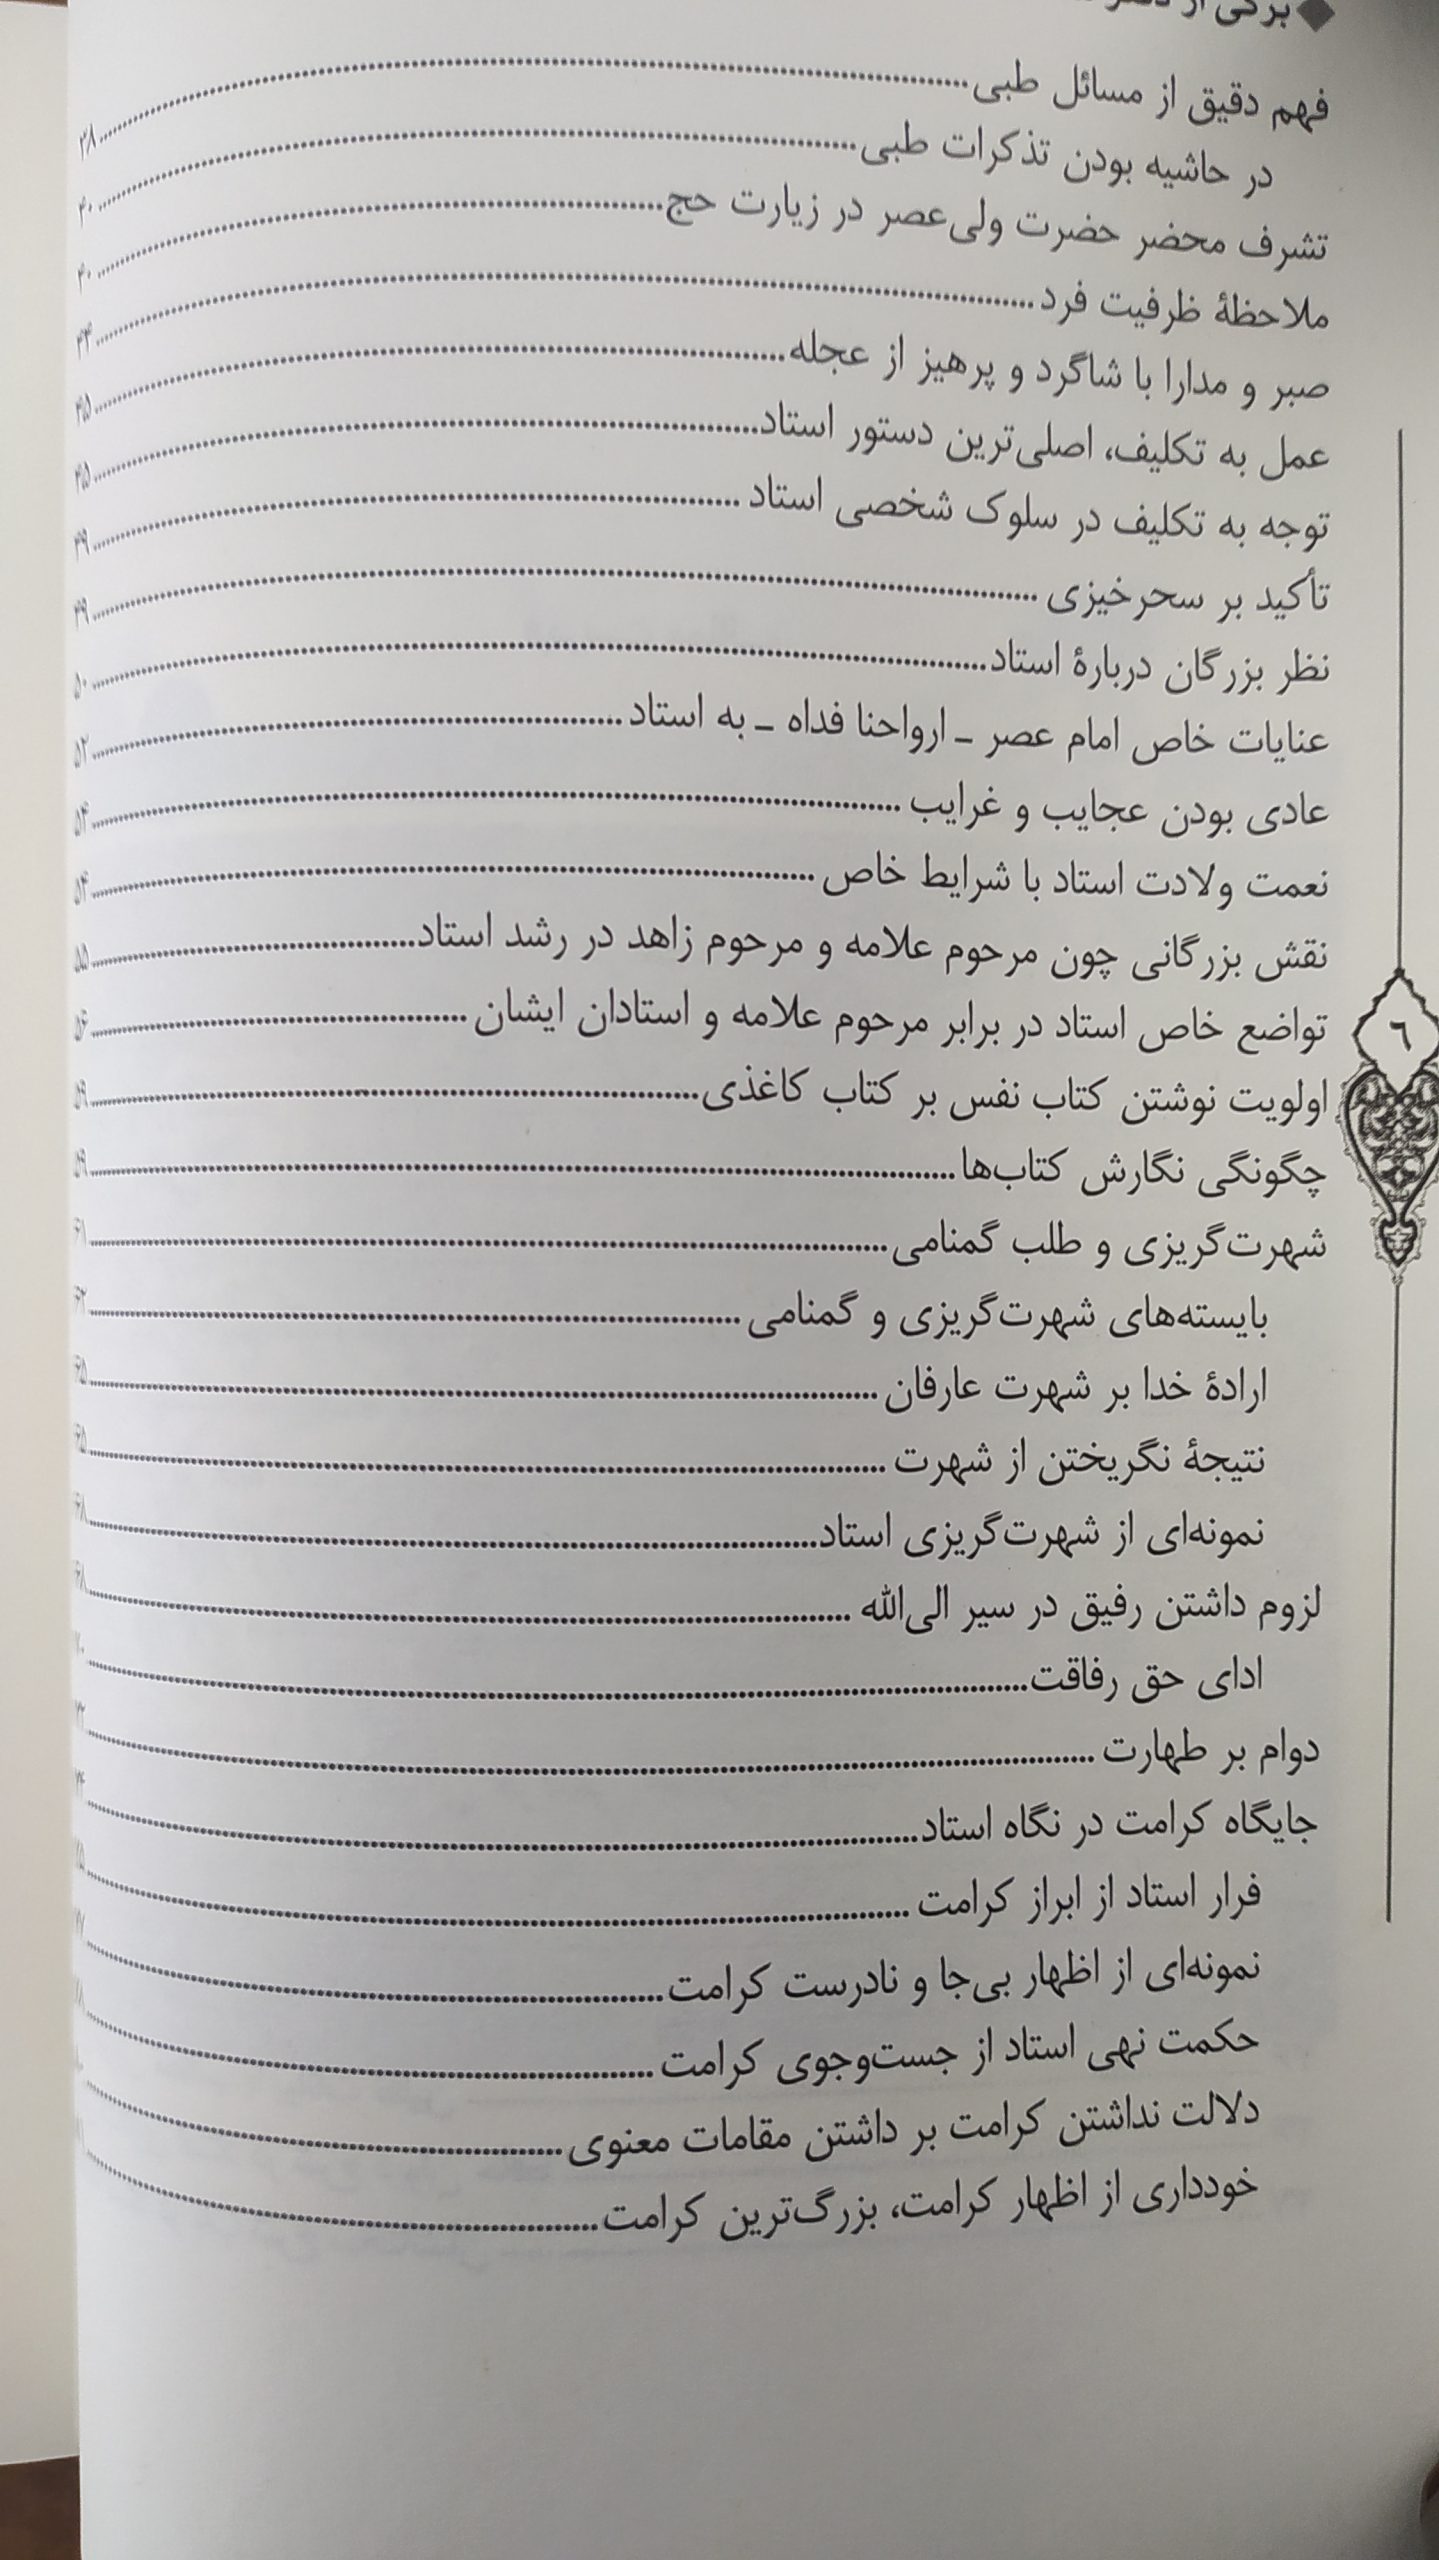 برگی از دفتر
فهم دقیق از مسائل طبی ۳۸
در حاشیه بودن تذکرات طبی ۴۰
تشرف محضر حضرت ولی‌عصر در زیارت حج ۴۰
ملاحظهٔ ظرفیت فرد ۴۴
صبر و مدارا با شاگرد و پرهیز از عجله ۴۵
عمل به تکلیف، اصلی‌ترین دستور استاد ۴۵
توجه به تکلیف در سلوک شخصی استاد ۴۹
تأکید بر سحرخیزی ۴۹
نظر بزرگان دربارهٔ استاد ۵۰
عنایات خاص امام عصر ـ ارواحنا فداه ـ به استاد ۵۲
عادی بودن عجایب و غرایب ۵۴
نعمت ولادت استاد با شرایط خاص ۵۴
نقش بزرگانی چون مرحوم علامه و مرحوم زاهد در رشد استاد ۵۵
تواضع خاص استاد در برابر مرحوم علامه و استادان ایشان ۵۶
اولویت نوشتن کتاب نفس بر کتاب کاغذی ۵۹
چگونگی نگارش کتاب‌ها ۵۹
شهرت‌گریزی و طلب گمنامی ۶۱
بایسته‌های شهرت‌گریزی و گمنامی ۶۲
ارادهٔ خدا بر شهرت عارفان ۶۵
نتیجهٔ نگریختن از شهرت ۶۵
نمونه‌ای از شهرت‌گریزی استاد ۶۸
لزوم داشتن رفیق در سیر الی‌الله ۶۸
ادای حق رفاقت
دوام بر طهارت
جایگاه کرامت در نگاه استاد
فرار استاد از ابراز کرامت
نمونه‌ای از اظهار بی‌جا و نادرست کرامت
حکمت نهی استاد از جست‌وجوی کرامت
دلالت نداشتن کرامت بر داشتن مقامات معنوی
خودداری از اظهار کرامت، بزرگ‌ترین کرامت
٦